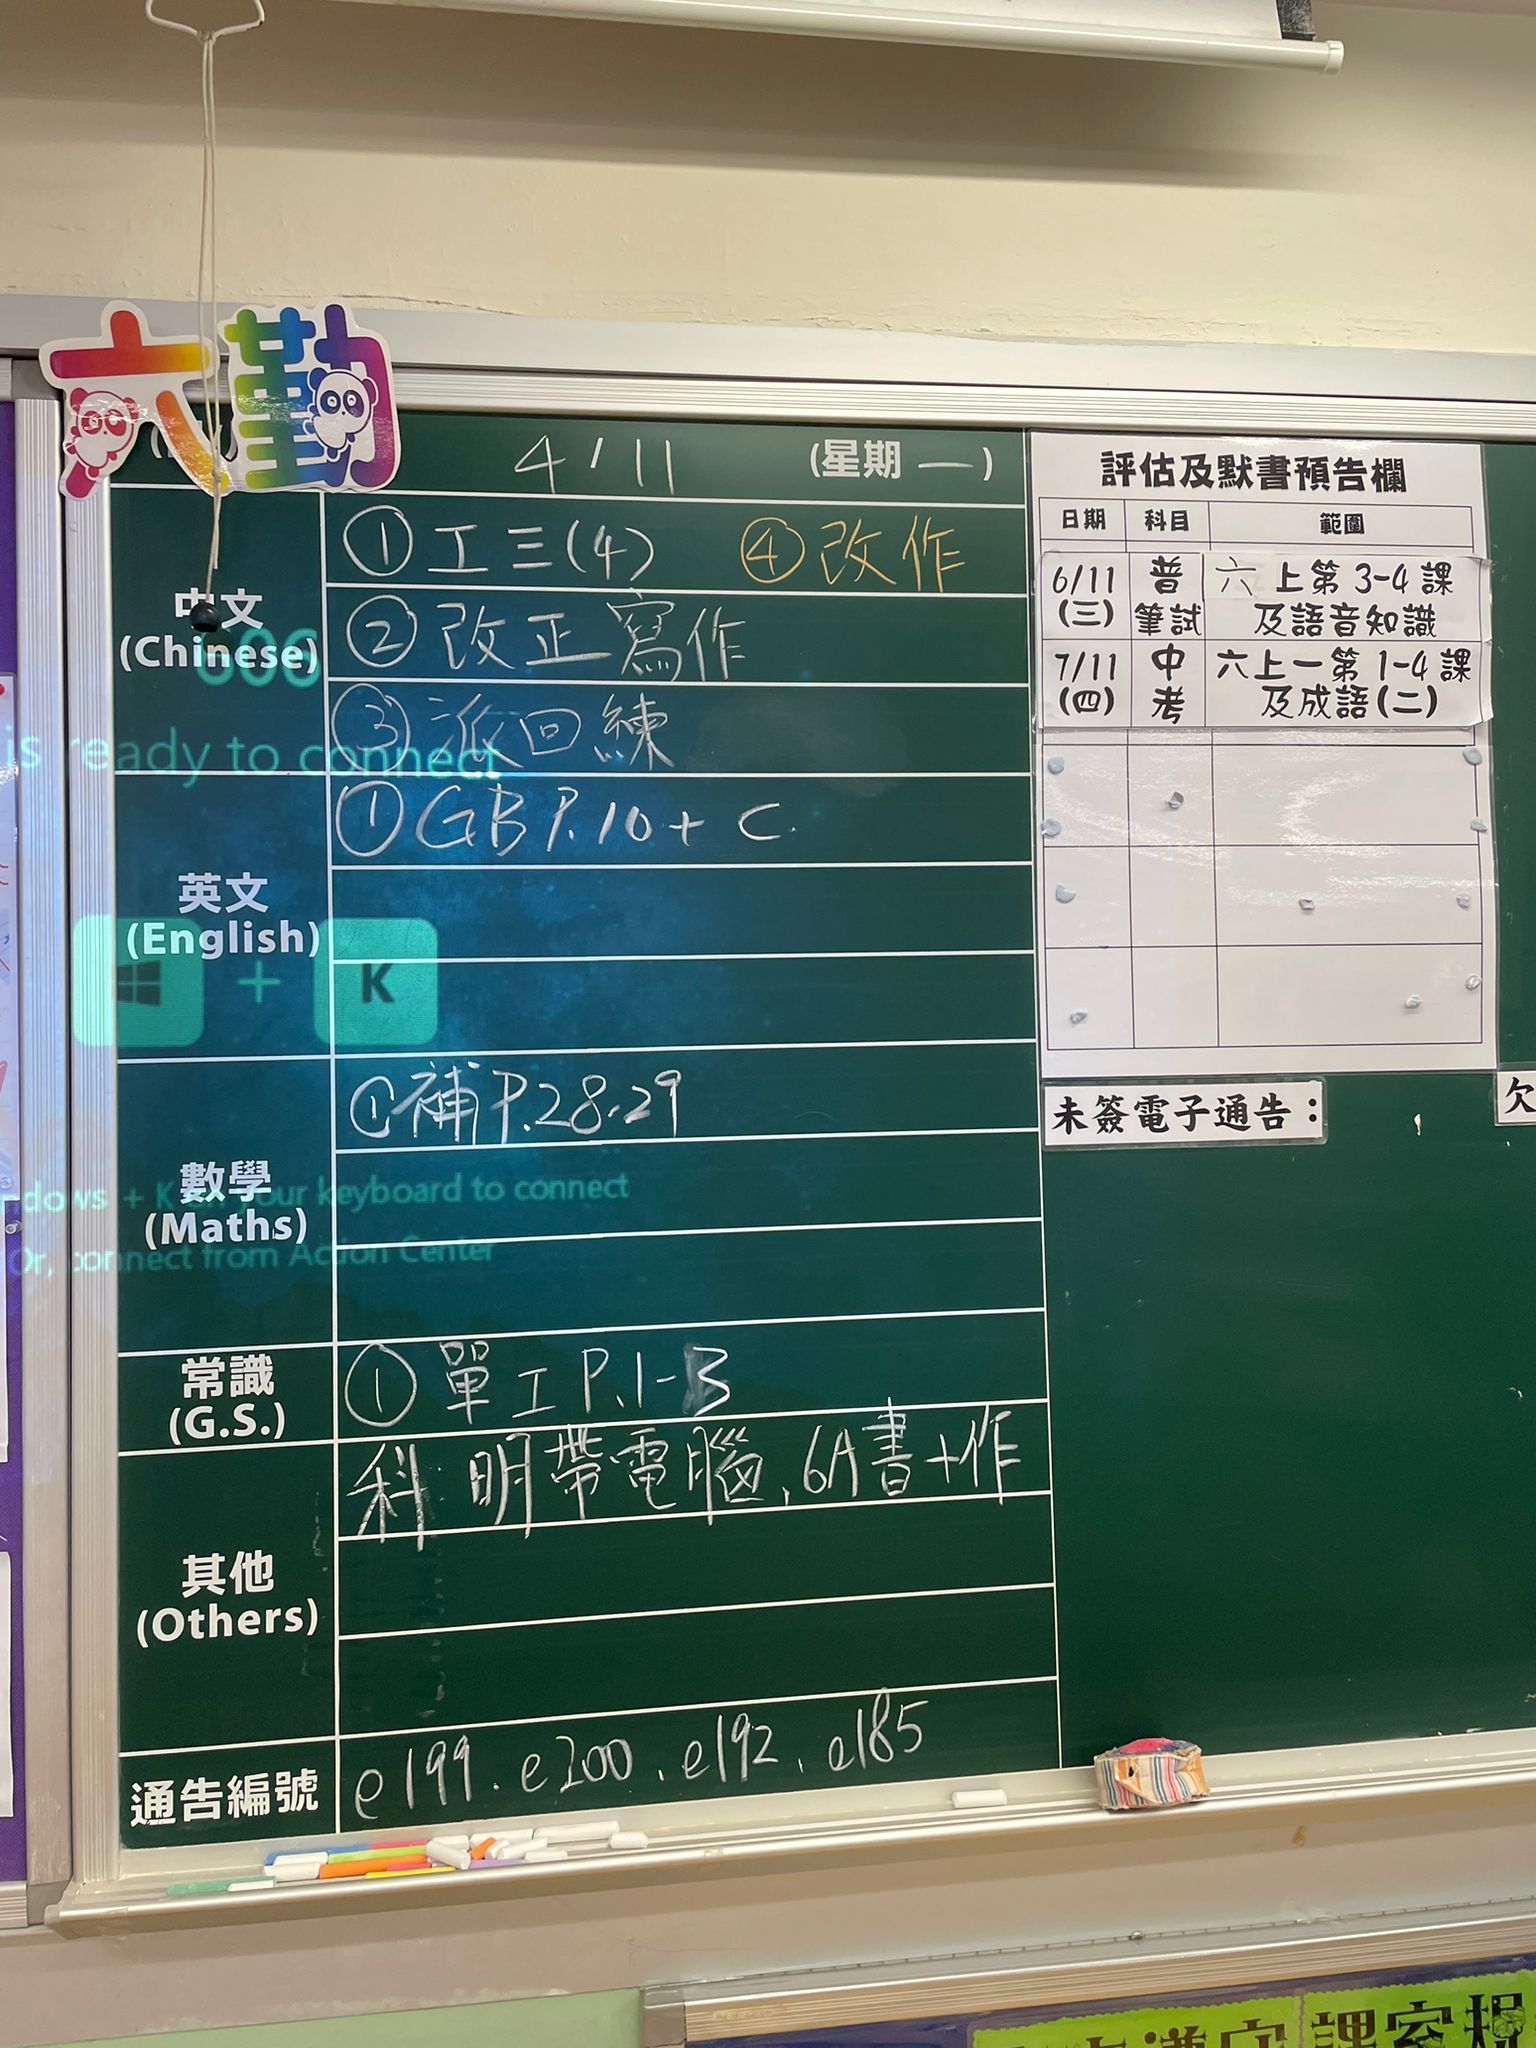 六勤
4/11 (星期一)
中文
(Chinese)
①工三(4) ④改作
②改正寫作
③派回練
英文
(English)
①GB P.10 + C.
數學
(Maths)
①補P.28-29
常識
(G.S.)
①單工P.1-3
其他
(Others)
科 明帶電腦, 6A書+作
通告編號
e199. e200. e192. e185
606
is ready to connect
+ K
dows + K on your keyboard to connect
Or, connect from Action Center
評估及默書預告欄
日期 科目 範圍
6/11 普 六上第3-4課
(三) 筆試 及語音知識
7/11 中 六上一第1-4課
(四) 考 及成語(二)
未簽電子通告：
欠
課室規